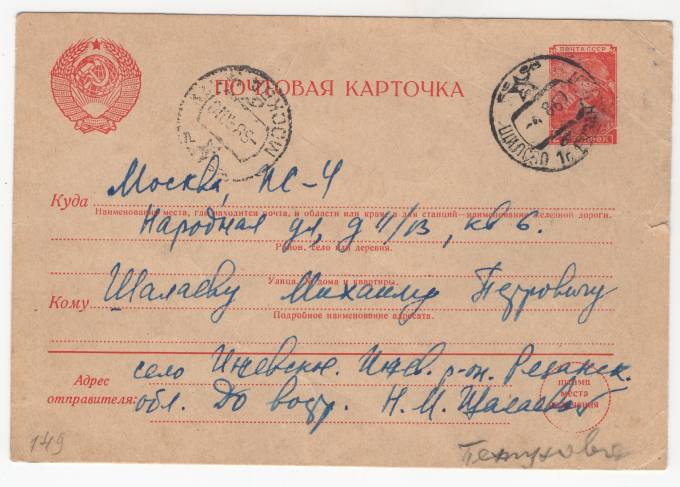 ПОЧТА СССР
ПОЧТОВАЯ КАРТОЧКА
МОСКВА
Куда Москва, ПС-4
Наименование места, где находится почта, и области или края, а для станций—наименование железной дороги.
Народная ул, д 11/13, кв 6.
Район, село или деревня.
Улица, № дома и квартиры.
Кому Шалаеву Михаилу Петровичу
Подробное наименование адресата.
село Ижевское. Ижев. р-он. Рязанск.
Адрес отправителя: обл. До востр. Н. М. Шалаевой
штамп
места
149
Петухова